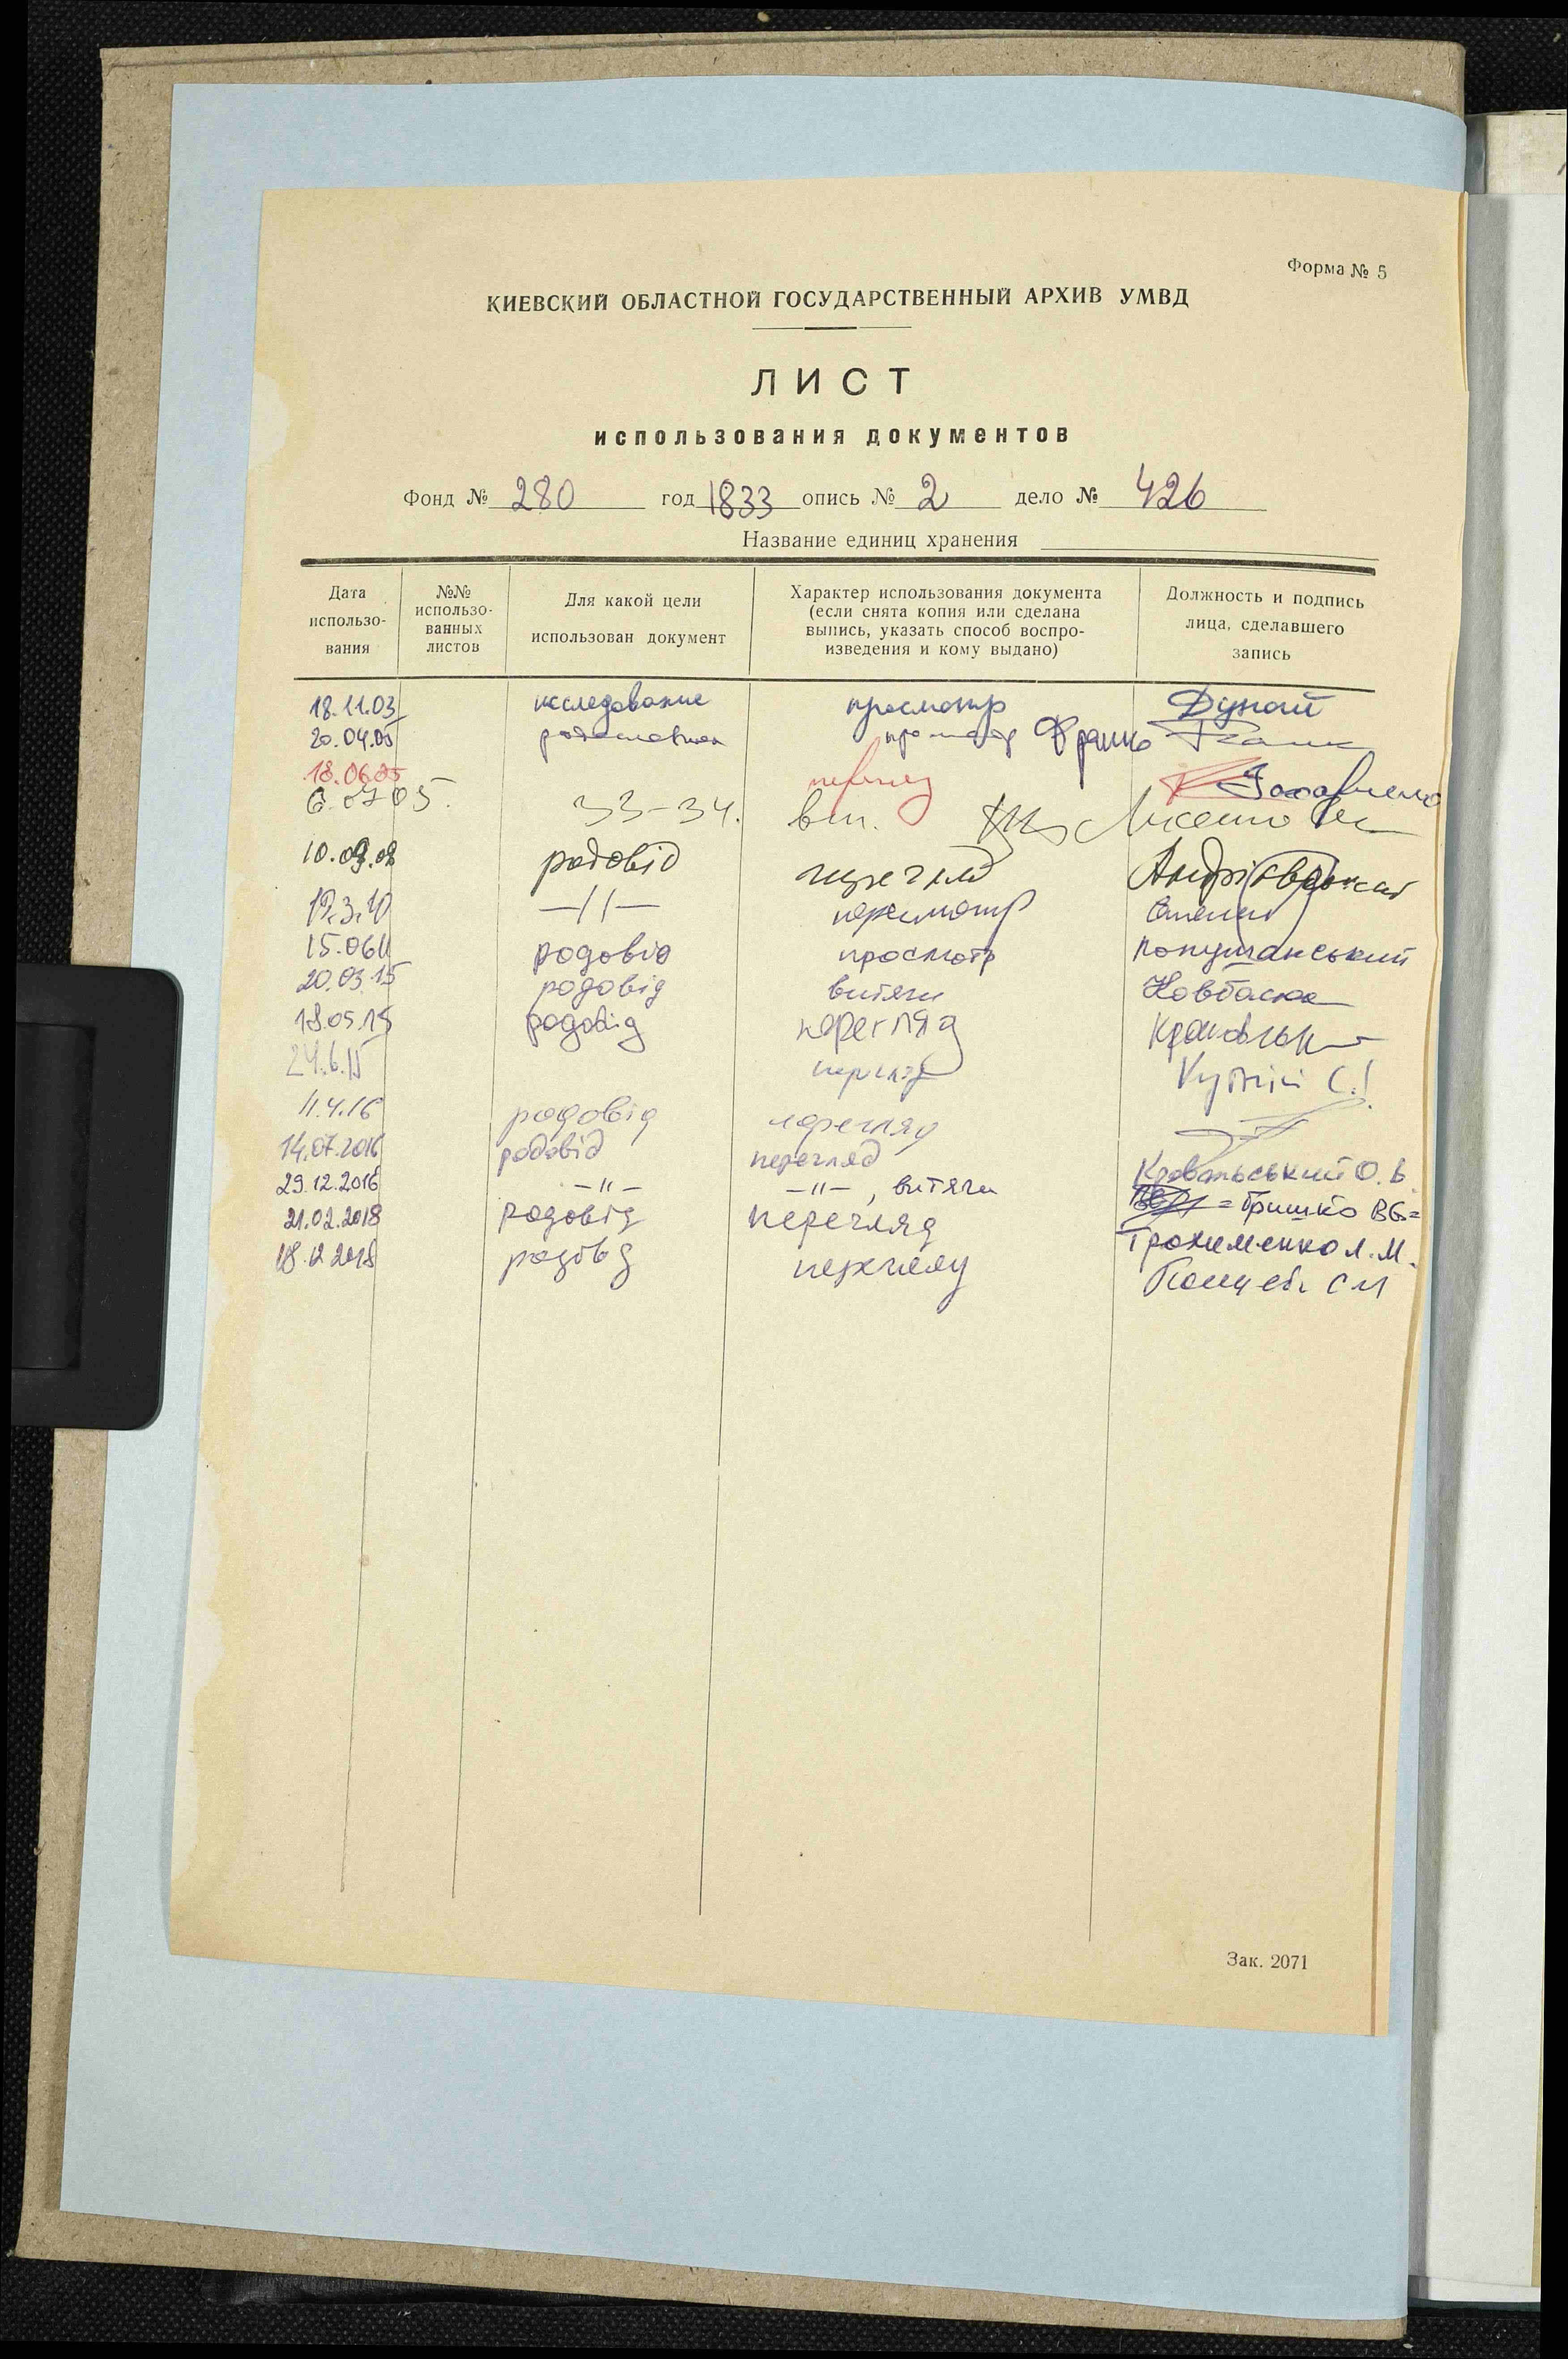 Форма № 5
КИЕВСКИЙ ОБЛАСТНОЙ ГОСУДАРСТВЕННЫЙ АРХИВ УМВД
ЛИСТ
использования документов
Фонд № 280 год 1833 опись № 2 дело № 426
Название единиц хранения
Дата использо-вания №№ использо-ванных листов Для какой цели использован документ Характер использования документа (если снята копия или сделана выпись, указать способ воспро-изведения и кому выдано) Должность и подпись лица, сделавшего запись
18.11.03 исследование просмотр Дунай
20.04.05 Франко
18.06.05
6.07.05. 33-34.
10.09.08 родовід перегляд
19.3.10 —//—
15.06.11 родовід просмотр
20.03.15 родовід витяги
18.05.15 родовід перегляд
24.6.15 перегляд
11.4.16 родовід перегляд
14.07.2016 родовід перегляд
29.12.2016 -"- -"-, витяги = Гришко
21.02.2018 родовід перегляд Трохименко Л.М.
18.12 2018 родовід
Зак. 2071